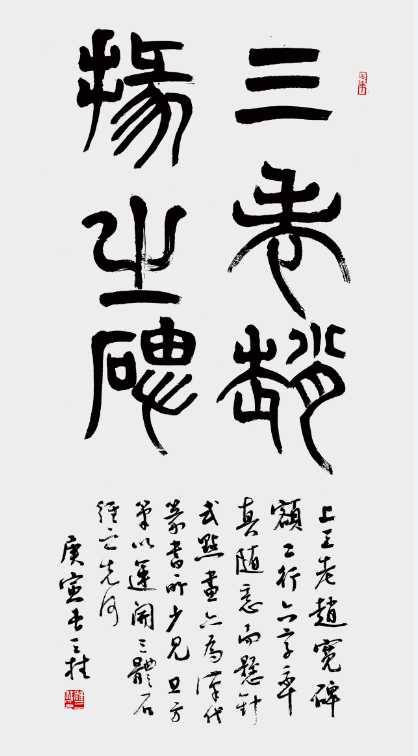 三老趙
掾之碑
上三老趙寬碑
額二行六字率
真隨意而懸針
式點畫亦為漢代
篆書所少見且方
筆以運開三體石
經之先河
庚寅